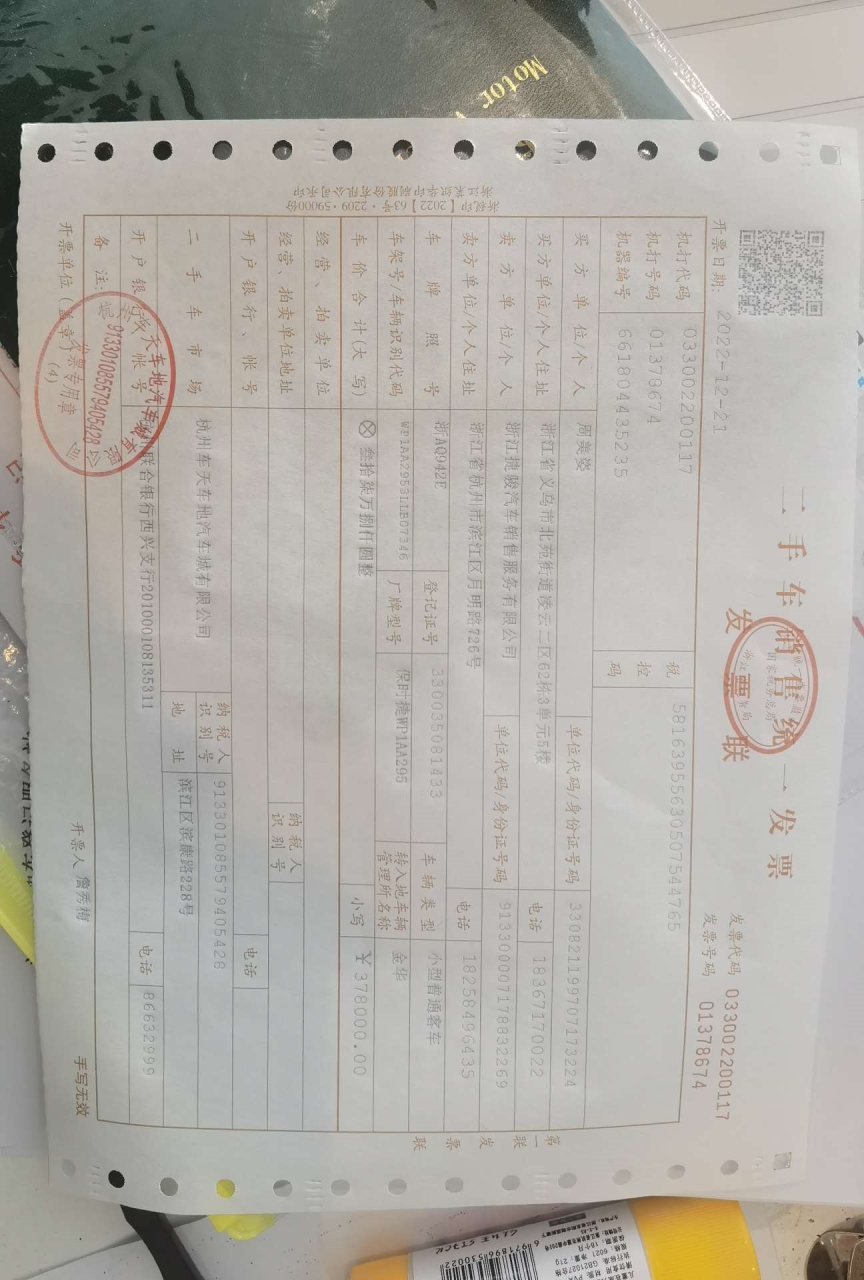 Motor
浙税印【2022】63号·2209·59000份
二手车销售统一发票
发票联
发票代码 033002200117
发票号码 01378674
开票日期: 2022-12-21
机打代码 033002200117
机打号码 01378674
机器编号 661804435235
税控码 58163955630507544765
买方单位/个人 周美姿 单位代码/身份证号码 330821199707173224
买方单位/个人住址 浙江省义乌市北苑街道凌云二区62栋3单元5楼 电话 18367170022
卖方单位/个人 浙江捷骏汽车销售服务有限公司 单位代码/身份证号码 913300007178832269
卖方单位/个人住址 浙江省杭州市滨江区月明路726号 电话 18258496435
车牌照号 浙AQ942E 登记证号 330035081433 车辆类型 小型普通客车
车架号/车辆识别代码 WP1AA2953LLB07346 厂牌型号 保时捷WP1AA295 转入地车辆管理所名称 金华
车价合计(大写) ⊗叁拾柒万捌仟圆整 小写 ¥378000.00
经营、拍卖单位
经营、拍卖单位地址 纳税人识别号
开户银行、帐号 电话
二手车市场 杭州车天车地汽车城有限公司 纳税人识别号 913301085579405428
地址 滨江区滨康路228号
开户银行、帐号 联合银行西兴支行201000108135311 电话 86632999
备注:
开票单位(盖章) 开票人 詹秀梅 手写无效
第一联 发票联
国家税务总局
车天车地汽车城有限公司
913301085579405428
发票专用章
(4)
GLUE STICK
6 971896 530022